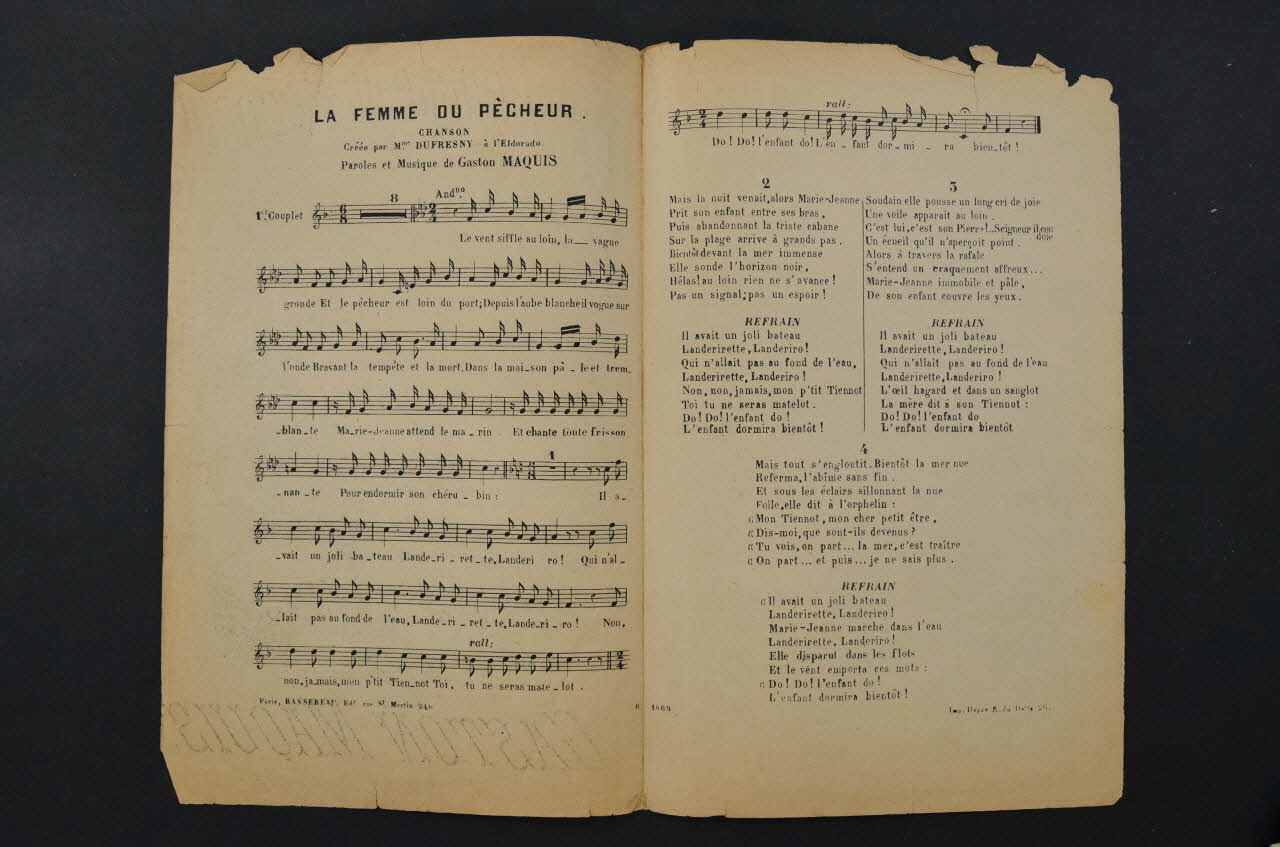 LA FEMME DU PÈCHEUR .
CHANSON
Créée par Mme DUFRESNY à l'Eldorado
Paroles et Musique de Gaston MAQUIS
1er Couplet
8
Andno
Le vent siffle au loin, la__ vague
gronde Et le pêcheur est loin du port; Depuis l'aube blanche il vogue sur
l'onde Bravant la tempête et la mort. Dans la mai_son pâ_le et trem_
_blan_te Ma_rie-Jeanne attend le ma_rin . Et chante toute frisson
_nan_te Pour endormir son chéru_bin :
1
Il a_
_vait un joli ba_teau Lande_ri_ret_te, Landeri ro ! Qui n'al_
_lait pas au fond de l'eau, Lande_ri_ret_te, Lande_ri_ro ! Non,
rall:
non, ja_mais, mon p'tit Tien_not Toi, tu ne seras mate_lot .
Paris, BASSEREAU, Edr rue St Martin 240
rall:
Do ! Do ! l'enfant do ! L'en_fant dor_mi_ra bien_tôt !
2
Mais la nuit venait, alors Marie-Jeanne
Prit son enfant entre ses bras ,
Puis abandonnant la triste cabane
Sur la plage arrive à grands pas .
Bientôt devant la mer immense
Elle sonde l'horizon noir,
Hélas! au loin rien ne s'avance !
Pas un signal; pas un espoir !
REFRAIN
Il avait un joli bateau
Landerirette, Landeriro !
Qui n'allait pas au fond de l'eau,
Landerirette, Landeriro !
Non, non, jamais, mon p'tit Tiennot
Toi tu ne seras matelot .
Do! Do! l'enfant do !
L'enfant dormira bientôt !
3
Soudain elle pousse un long cri de joie
Une voile apparait au loin .
C'est lui, c'est son Pierr'!..Seigneur il cou
doie
Un écueil qu'il n'aperçoit point .
Alors à travers la rafale
S'entend un craquement affreux...
Marie-Jeanne immobile et pâle ,
De son enfant couvre les yeux .
REFRAIN
Il avait un joli bateau
Landerirette, Landeriro !
Qui n'allait pas au fond de l'eau
Landerirette, Landeriro !
L'œil hagard et dans un sanglot
La mère dit à son Tiennot :
Do! Do! l'enfant do
L'enfant dormira bientôt
4
Mais tout s'engloutit. Bientôt la mer nue
Referma, l'abîme sans fin .
Et sous les éclairs sillonnant la nue
Folle, elle dit à l'orphelin :
« Mon Tiennot, mon cher petit être ,
« Dis-moi, que sont-ils devenus ?
« Tu vois, on part... la mer, c'est traître
« On part... et puis... je ne sais plus .
REFRAIN
« Il avait un joli bateau
Landerirette, Landeriro !
Marie-Jeanne marche dans l'eau
Landerirette, Landeriro !
Elle disparut dans les flots
Et le vent emporta ces mots :
« Do! Do! l'enfant do !
L'enfant dormira bientôt !